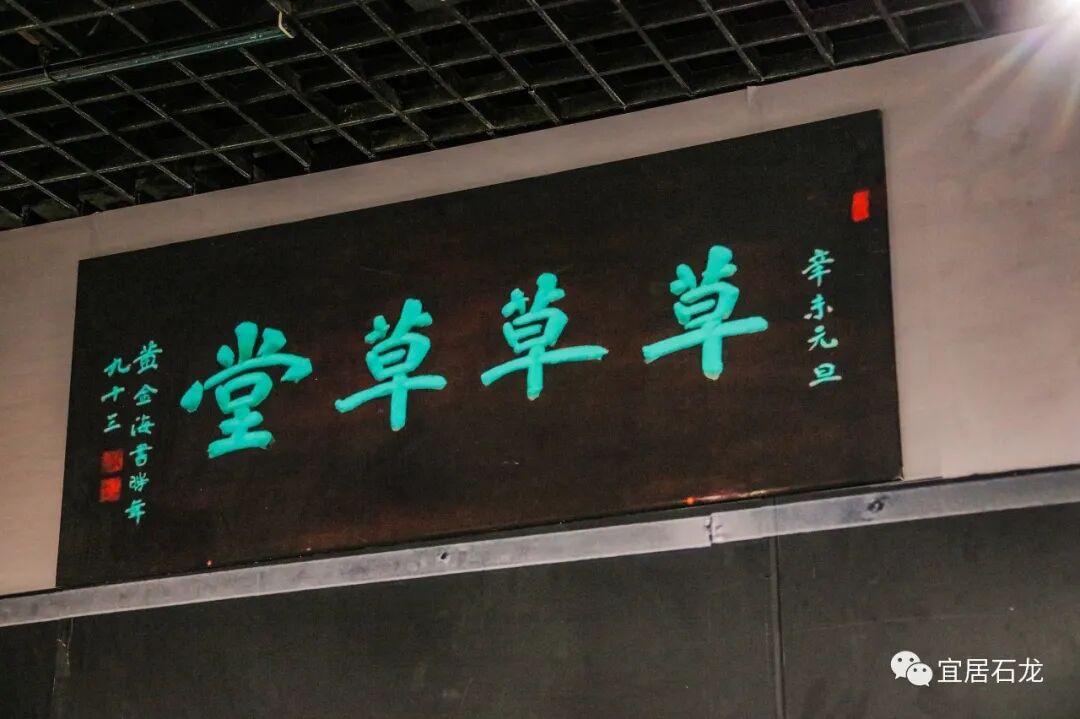 辛未元旦
草草草堂
黄金海书时年
九十三
宜居石龙